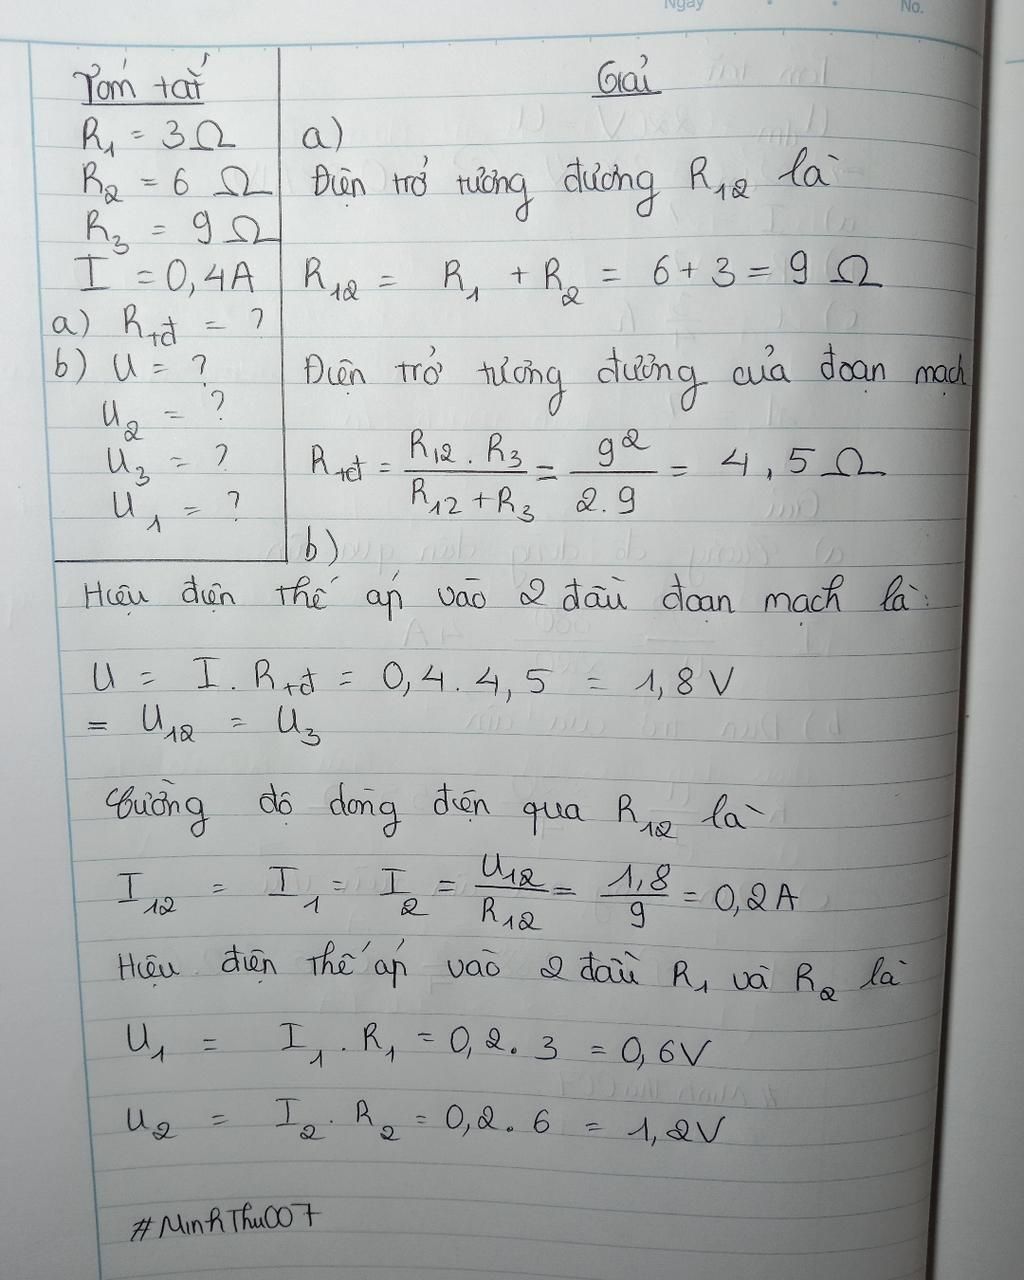 Ngày
No.
Tóm tắt
R₁ = 3 Ω
R₂ = 6 Ω
R₃ = 9 Ω
I = 0,4A
a) Rtđ = ?
b) U = ?
U₂ = ?
U₃ = ?
U₁ = ?
Giải
a)
Điện trở tương đương R₁₂ là
R₁₂ = R₁ + R₂ = 6 + 3 = 9 Ω
Điện trở tương đương của đoạn mạch
Rtđ = (R₁₂ . R₃)/(R₁₂ + R₃) = 9²/(2.9) = 4,5 Ω
b)
Hiệu điện thế áp vào 2 đầu đoạn mạch là:
U = I . Rtđ = 0,4 . 4,5 = 1,8 V
= U₁₂ = U₃
Cường độ dòng điện qua R₁₂ là
I₁₂ = I₁ = I₂ = U₁₂/R₁₂ = 1,8/9 = 0,2A
Hiệu điện thế áp vào 2 đầu R₁ và R₂ là
U₁ = I₁ . R₁ = 0,2 . 3 = 0,6V
U₂ = I₂ . R₂ = 0,2 . 6 = 1,2V
#MinhThu007